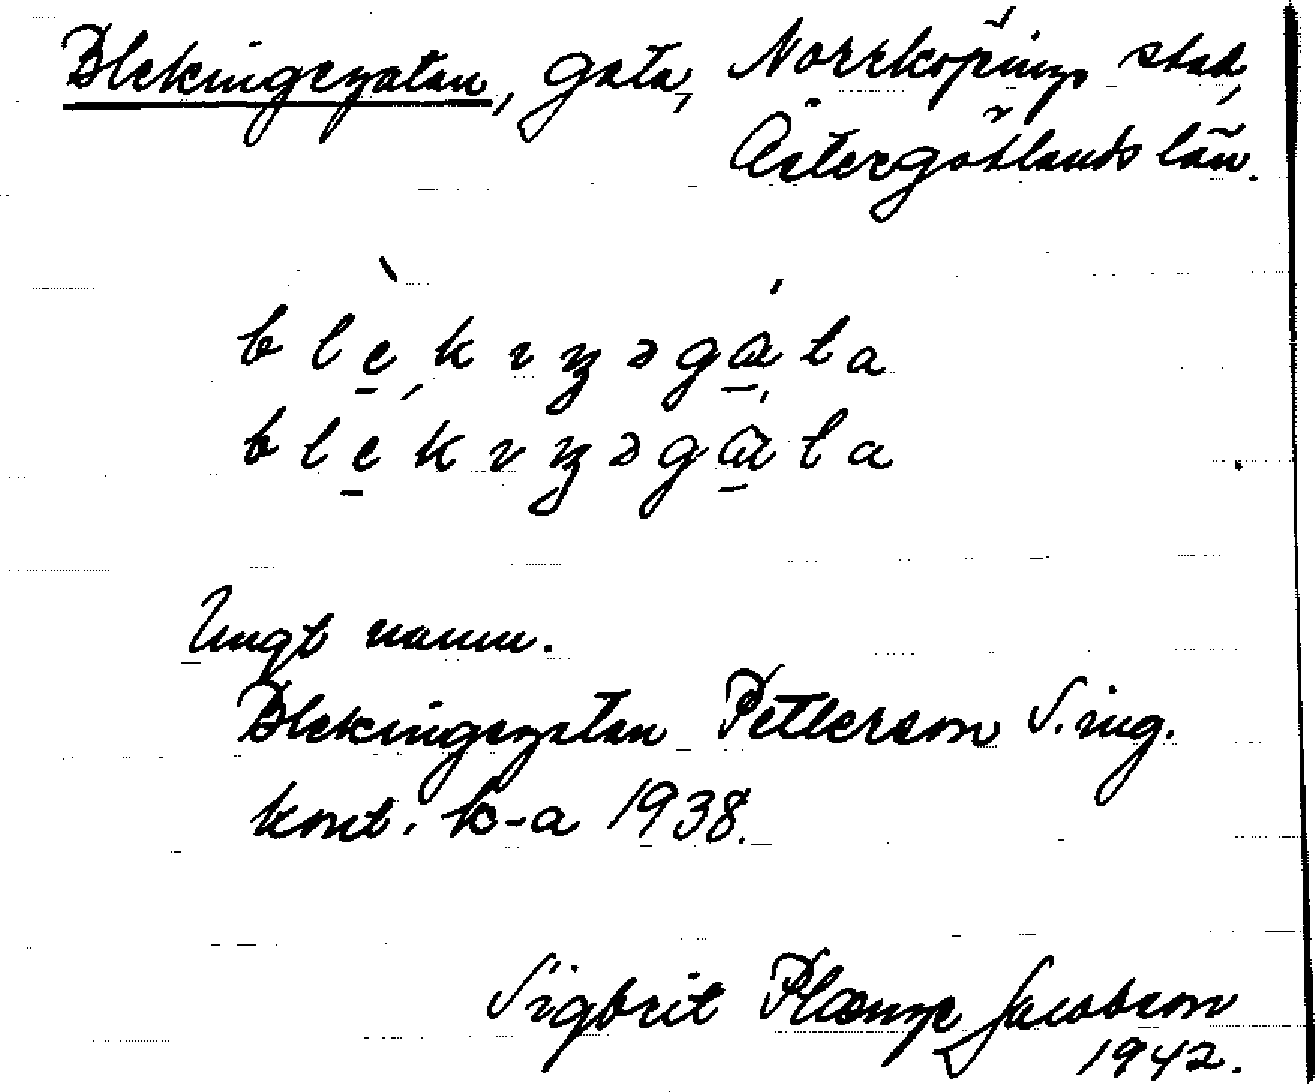 Blekingegatan, gata, Norrköpings stad,
Östergötlands län.
blèkıŋəgáta
blékıŋəgáta
Ungt namn.
Blekingegatan Petterson S. ing.
kont. k-a 1938.
Sigbrit Plænge Jacobson
1942.